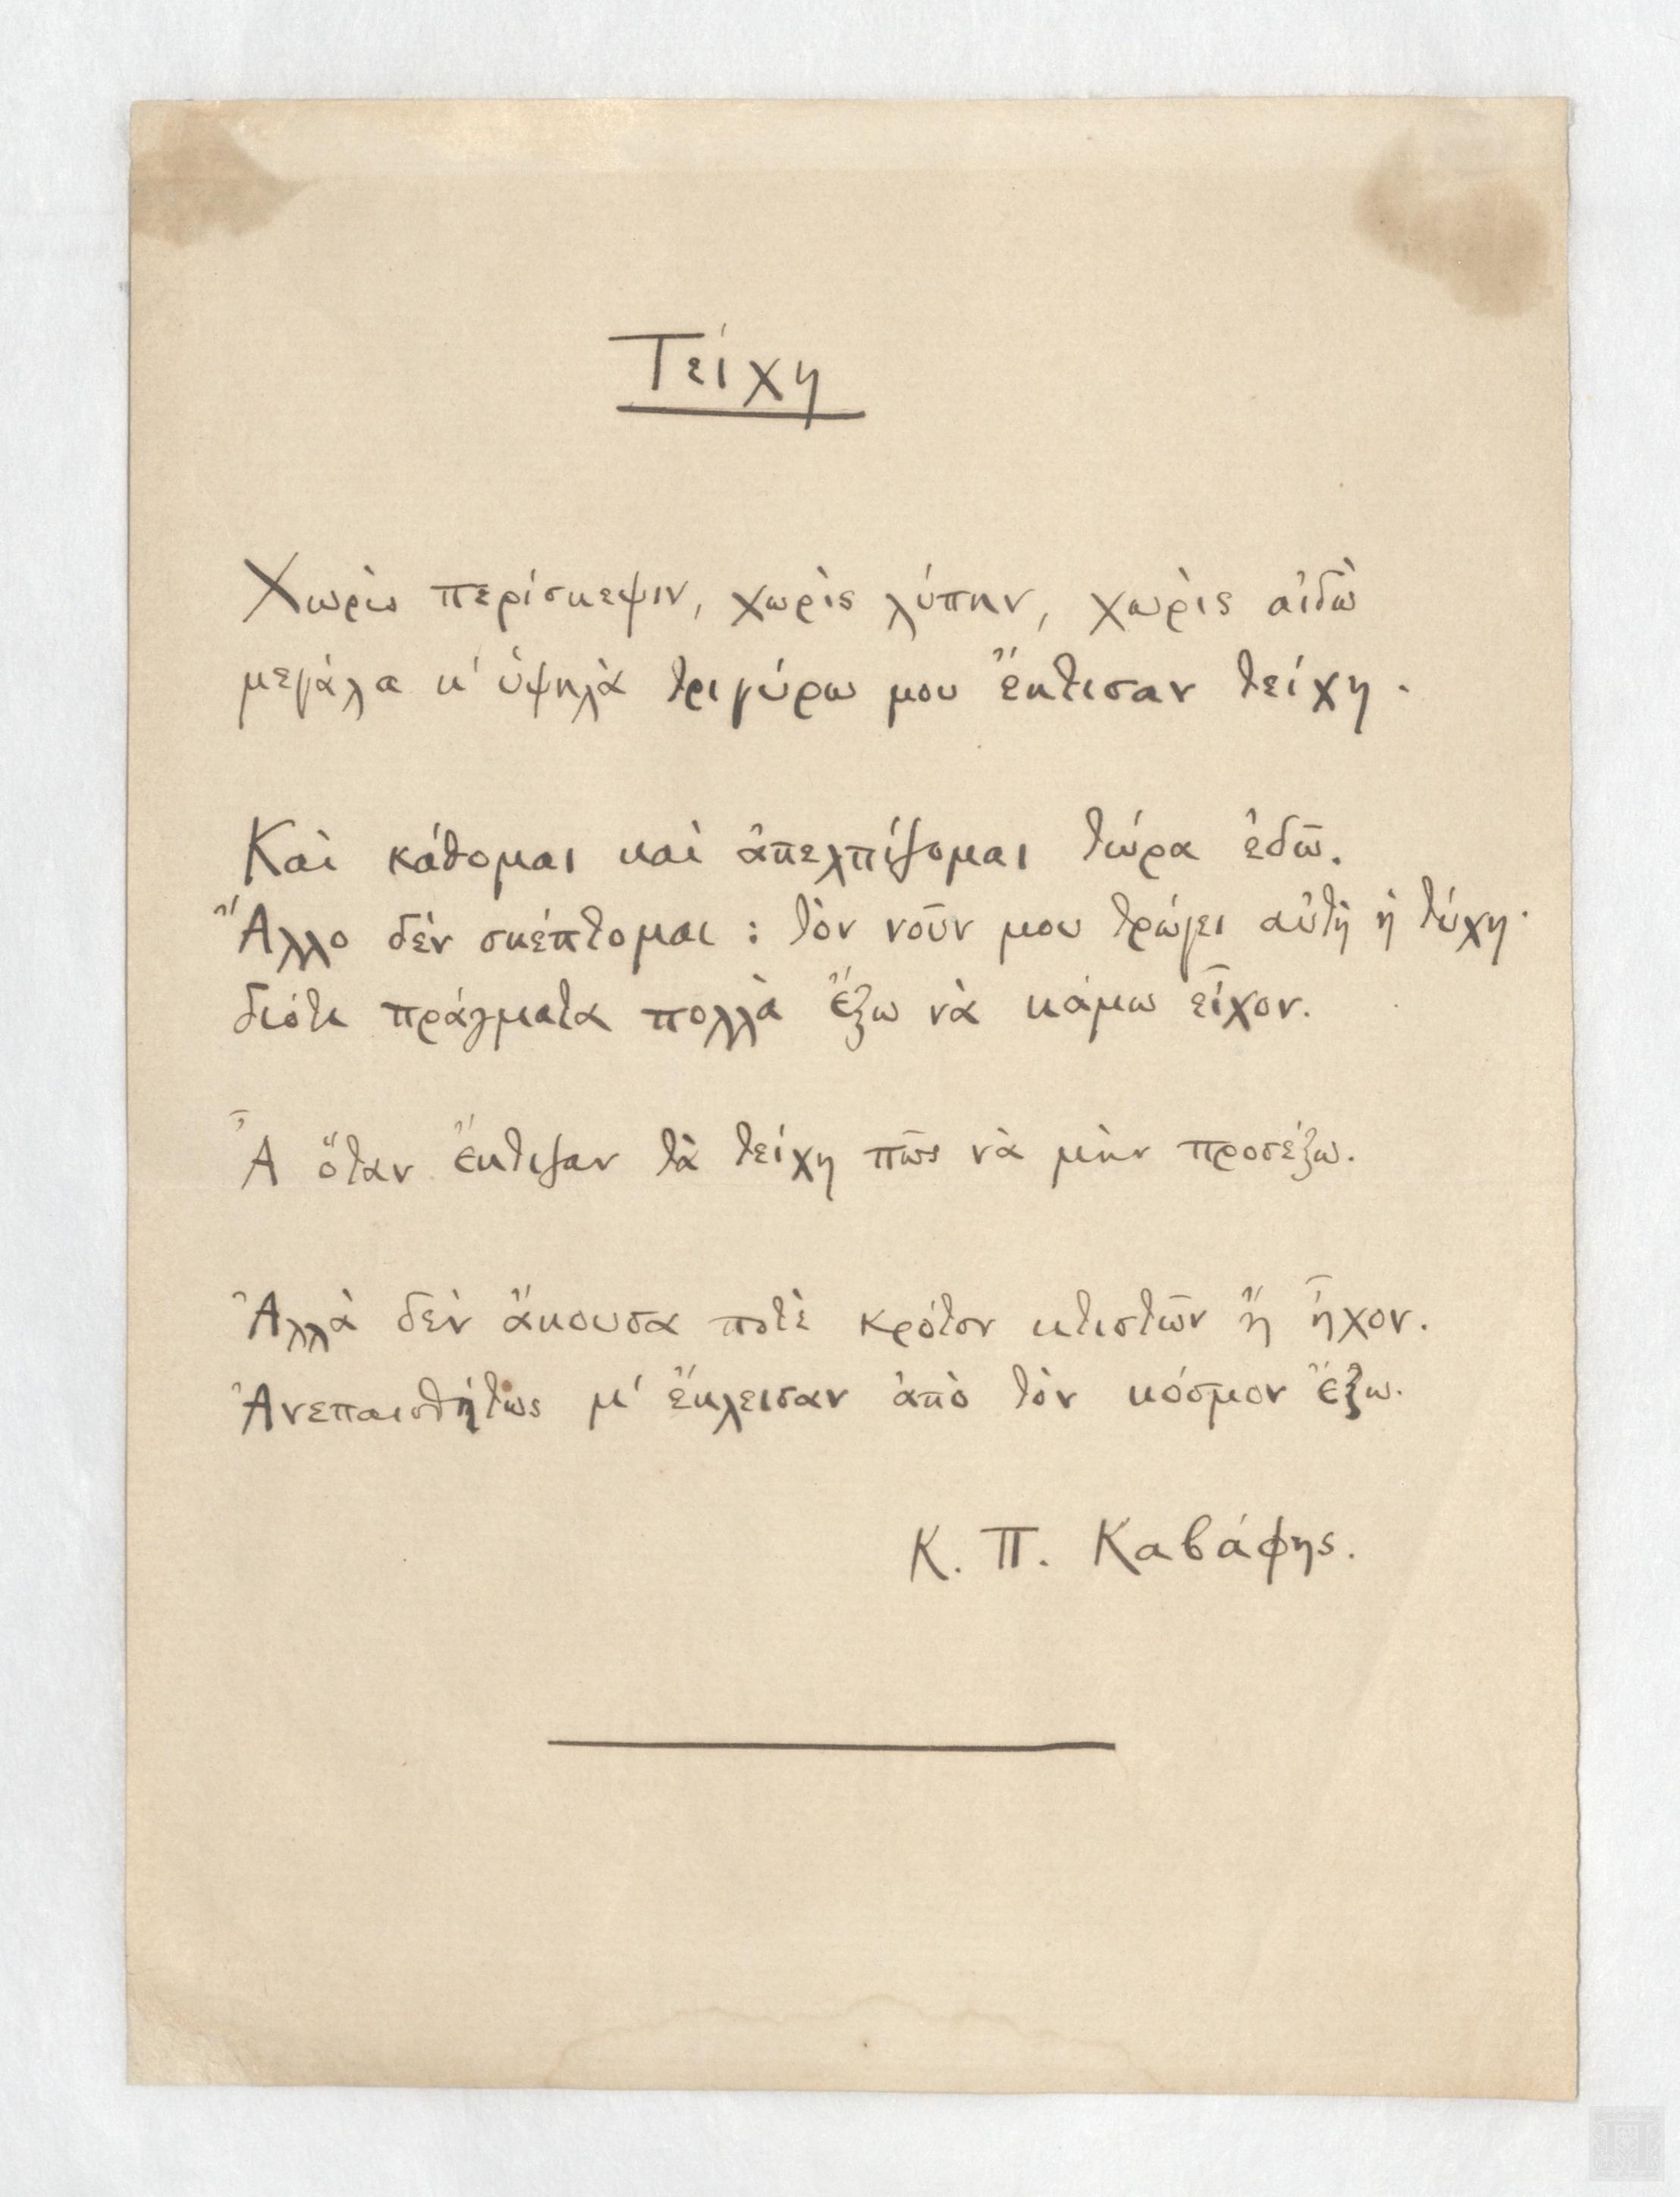 Τείχη
Χωρὶς περίσκεψιν, χωρὶς λύπην, χωρὶς αἰδὼ
μεγάλα κ' ὑψηλὰ τριγύρω μου ἔκτισαν τείχη.
Καὶ κάθομαι καὶ ἀπελπίζομαι τώρα ἐδῶ.
Ἄλλο δὲν σκέπτομαι: τὸν νοῦν μου τρώγει αὐτὴ ἡ τύχη·
διότι πράγματα πολλὰ ἔξω νὰ κάμω εἶχον.
Ἆ ὅταν ἔκτιζαν τὰ τείχη πῶς νὰ μὴν προσέξω.
Ἀλλὰ δὲν ἄκουσα ποτὲ κρότον κτιστῶν ἢ ἦχον.
Ἀνεπαισθήτως μ' ἔκλεισαν ἀπὸ τὸν κόσμον ἔξω.
Κ. Π. Καβάφης.